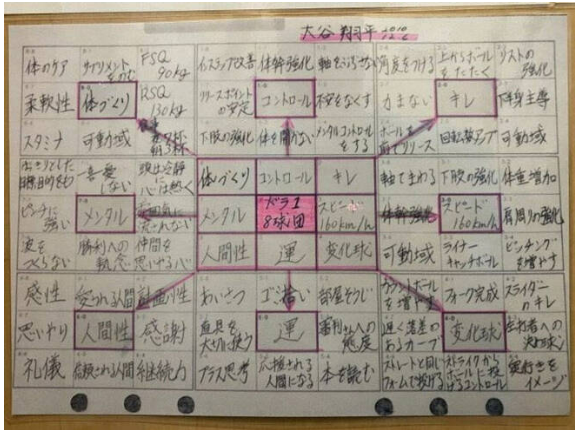 大谷 翔平
体のケア サプリメントをのむ FSQ 90kg インステップ改善 体幹強化 軸をぶらさない 角度をつける 上からボールをたたく リストの強化
柔軟性 体づくり RSQ 130kg リリースポイントの安定 コントロール 不安をなくす 力まない キレ 下半身主導
スタミナ 可動域 食事 夜7杯 朝3杯 下肢の強化 体を開かない メンタルコントロールをする ボールを前でリリース 回転数アップ 可動域
はっきりとした目標、目的をもつ 一喜一憂しない 頭は冷静に心は熱く 体づくり コントロール キレ 軸でまわる 下肢の強化 体重増加
ピンチに強い メンタル 雰囲気に流されない メンタル ドラ1 8球団 スピード 160km/h 体幹強化 スピード 160km/h 肩周りの強化
波をつくらない 勝利への執念 仲間を思いやる心 人間性 運 変化球 可動域 ライナーキャッチボール ピッチングを増やす
感性 愛される人間 計画性 あいさつ ゴミ拾い 部屋そうじ カウントボールを増やす フォーク完成 スライダーのキレ
思いやり 人間性 感謝 道具を大切に使う 運 審判さんへの態度 遅く落差のあるカーブ 変化球 左打者への決め球
礼儀 信頼される人間 継続力 プラス思考 応援される人間になる 本を読む ストレートと同じフォームで投げる ストライクからボールに投げるコントロール 奥行きをイメージ